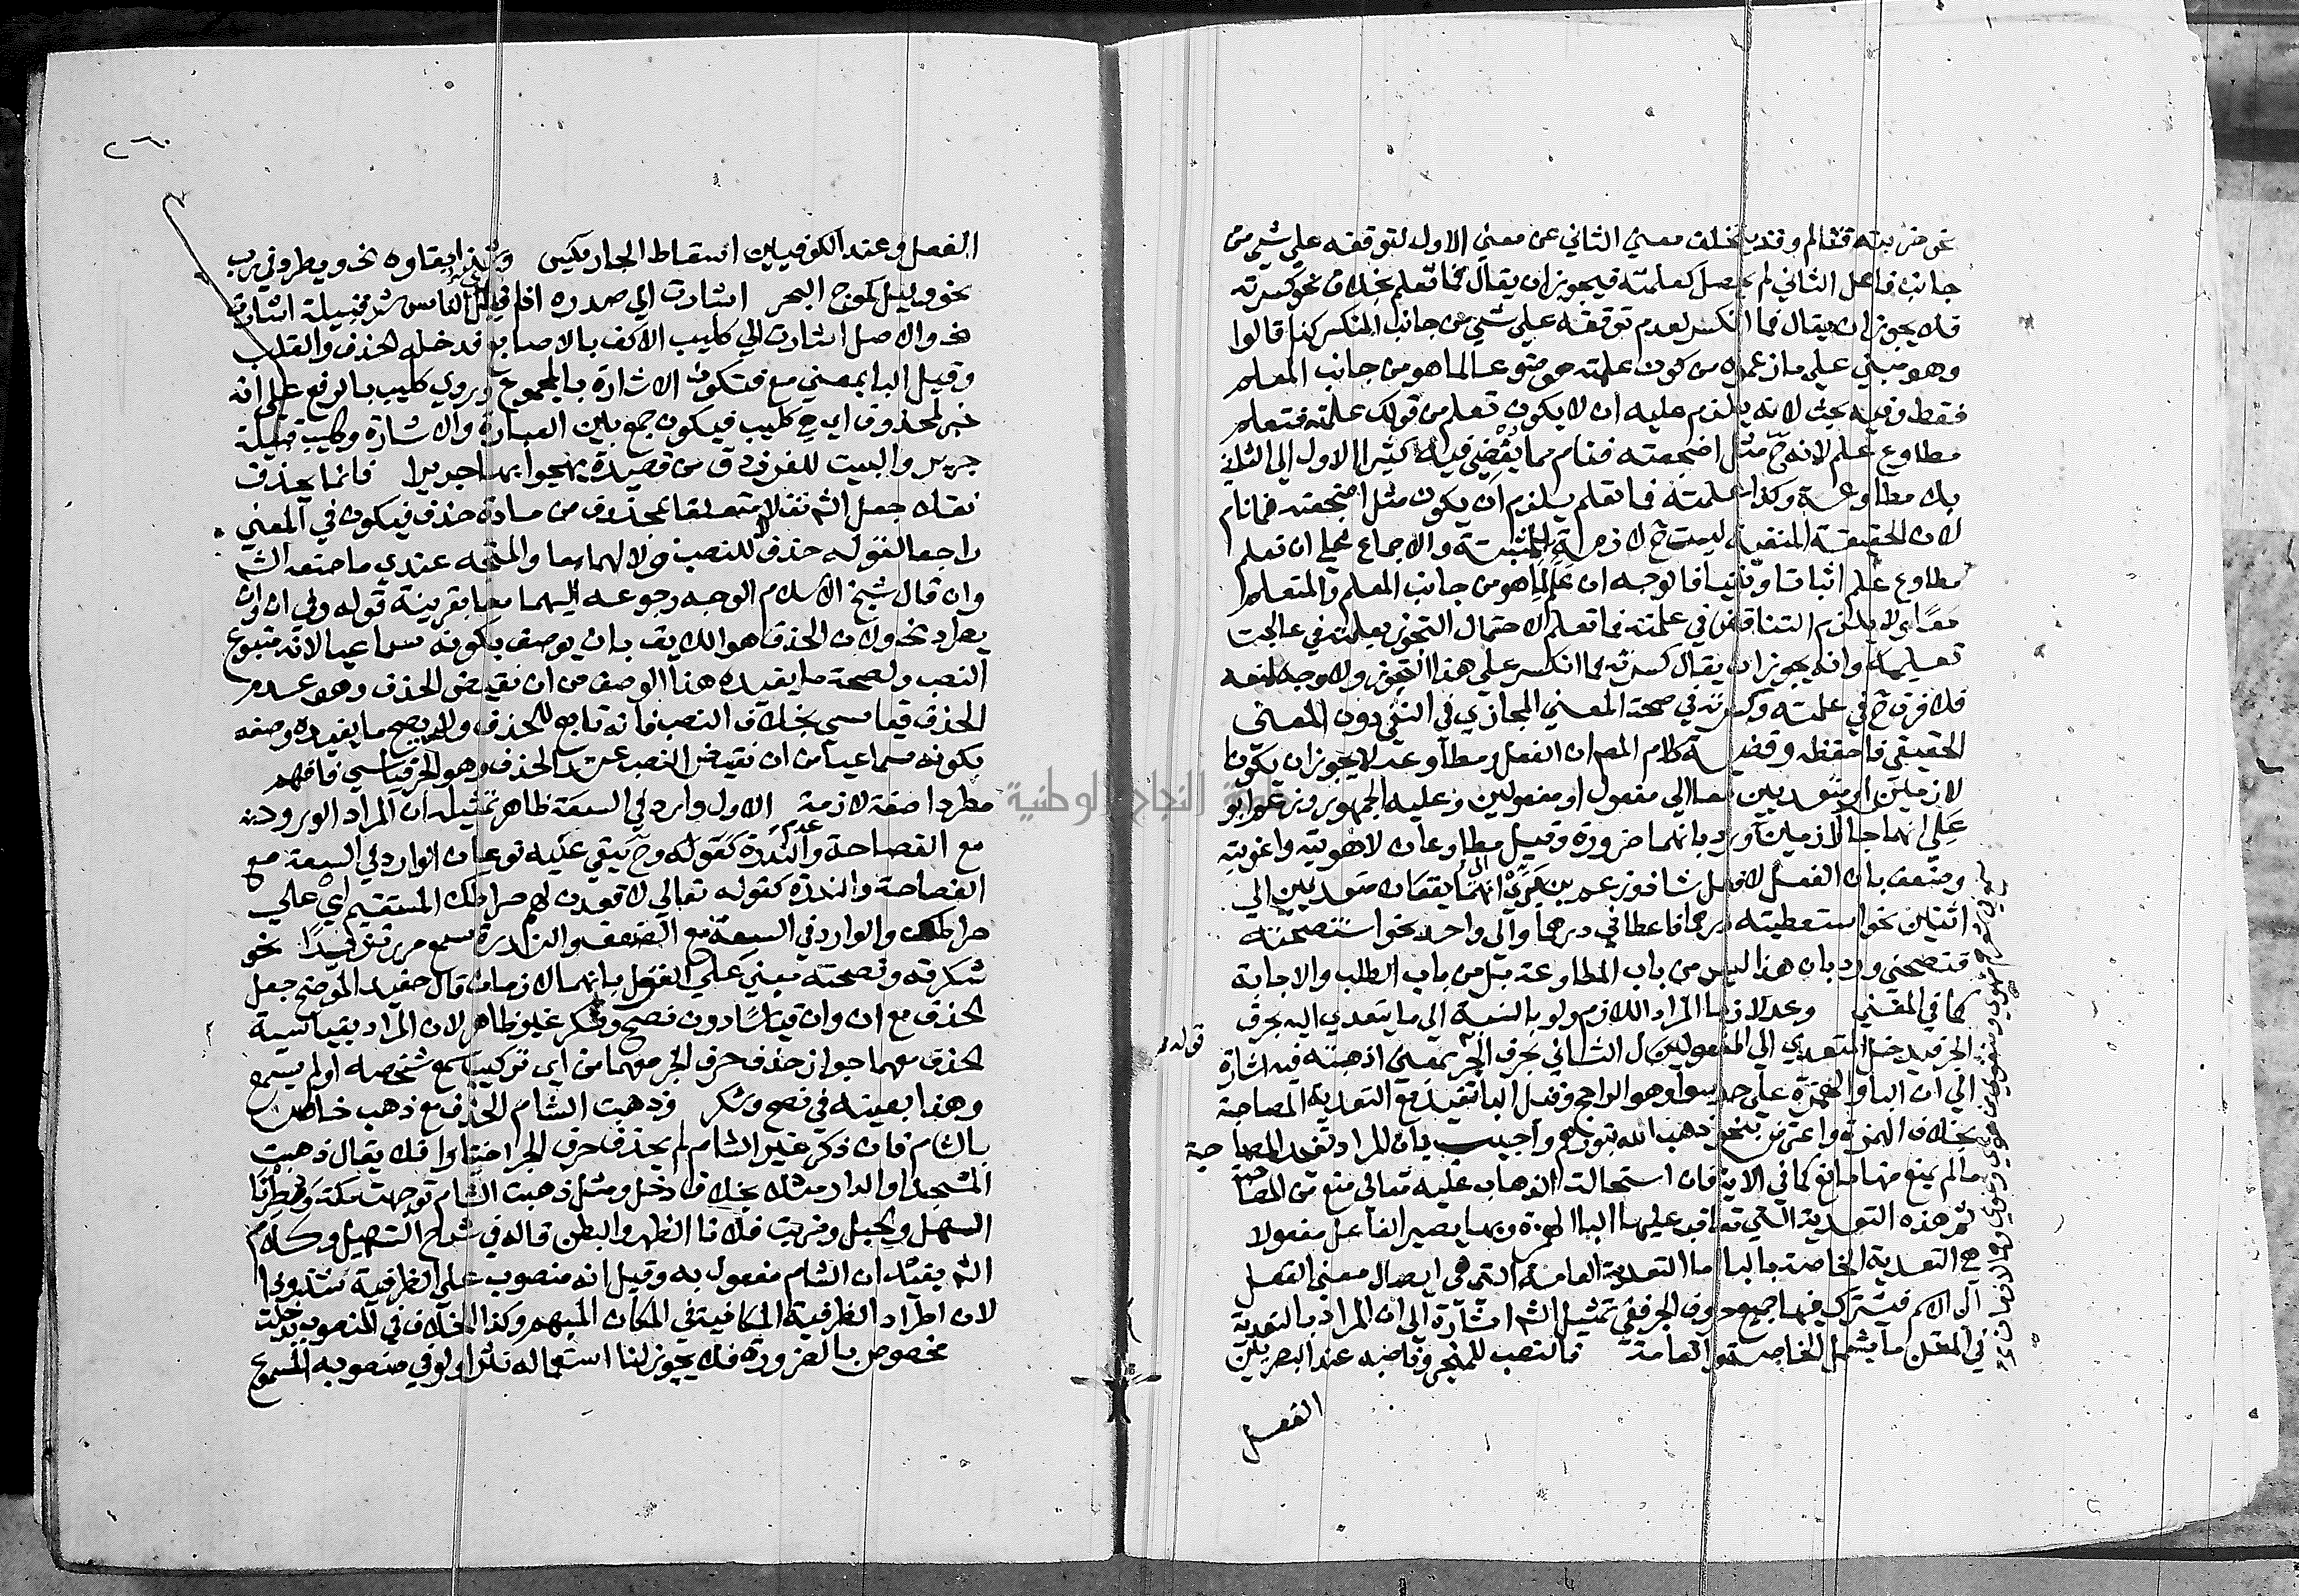 نحو ضربته فتالم وقد يتخلف معني الثاني عن معني الاول لتوقفه علي شي من
جانب فاعل الثاني لم يحصل كعلمته فيجوز ان يقال فما تعلم بخلاف نحو كسرته
فلا يجوز ان يقال فما انكسر لعدم توقفه علي شي من جانب المنكسر كذا قالوا
وهو مبني علي ما زعموه من كون علمته موضوعا لما هو من جانب المعلم
فقط وفيه بحث لانه يلزم عليه ان لا يكون تعلم من قولك علمته فتعلم
مطاوع علم لانه ح مثل اضجعته فنام مما يفضي فيه كثيرا الاول الي الثاني
بلا مطاوعة وكذا علمته فما تعلم يلزم ان يكون مثل اضجعته فما نام
لان الحقيقة المنفية ليست ح لازمة للمثبتة والاجماع علي ان تعلم
مطاوع علم اثباتا ونفيا فالوجه ان علم لما هو من جانب المعلم والمتعلم
معا ولا يلزم التناقض في علمته فما تعلم لاحتمال التجوز بعلمته في عالجت
تعليمه وانه يجوز ان يقال كسرته فما انكسر علي هذا التجوز ولا وجه لمنعه
فلا فرق ح في علمته وكسرته في صحة المعني المجازي في النفي دون المعني
الحقيقي فاحفظه وقضية كلام المص ان الفعل ومطاوعه لا يجوز ان يكونا
لازمين او متعديين معا الي مفعول او مفعولين وعليه الجمهور وزعم ابو
علي انهما جا لازمين ورد بانهما ضرورة وقيل مطاوعان لاهويته واغويته
وضعف بان الفعل لافعل شاذ وزعم بن بري انهما يتفقان متعديين الي
اثنين نحو استعطيته درهما فاعطاني درهما والي واحد نحو استنصحته
فنصحني ورد بان هذا ليس من باب المطاوعة بل من باب الطلب والاجابة
كما في المغني وعد لازما المراد اللازم ولو بالنسبة الي ما يتعدي اليه بحرف
الجر فيدخل المتعدي الي المفعولين ال الثاني بحرف الجر بمعني اذهبته فيه اشارة
قوله
الي ان البا والهمزة علي حد سوا وهو الراجح وقيل البا تفيد مع التعدية المصاحبة
بخلاف الهمزة واعترض بنحو ذهب الله بنورهم واجيب بان المراد تفيد المصاحبة
ما لم يمنع منها مانع كما في الاية فان استحالة الذهاب عليه تعالي منع من المصاحبة
ثم هذه التعدية التي تعاقب عليها البا الهمزة وبهما يصير الفاعل مفعولا
هي التعدية الخاصة بالبا اما التعدية العامة التي هي ايصال معني الفعل
الي الاسم فيشترك فيها جميع حروف الجر ففي تمثيل الش اشارة الي ان المراد بالتعدية
في المتن ما يشمل الخاصة والعامة فالنصب للمنجر وناصبه عند البصريين
الفعل
٢٦٠
الفعل وعند الكوفيين اسقاط الجار مكين وشذ ابقاوه نحو ويطرو في رب
نحو وليل كموج البحر اشارت الي صدره اذا قيل اي الناس شر قبيلة اشارت
نحو والاصل اشارت الي كليب الاكف بالاصابع فدخله الحذف والقلب
وقيل البا بمعني مع فتكون الاشارة بالمجموع وروي كليب بالرفع علي انه
خبر لمحذوف اي هي كليب فيكون جمع بين العبارة والاشارة وكليب قبيلة
جرير والبيت للفرزدق من قصيدة يهجوا بها جريرا فانما يحذف
نقلا جعل الش نقلا متعلقا بمحذوف من مادة حذف فيكون في المعني
راجعا لقوله حذف لا للنصب ولا لهما معا والمتجه عندي ما صنعه الش
وان قال شيخ الاسلام الوجه رجوعه اليهما معا بقرينة قوله وفي ان وان
يطرد نحو ولان الحذف هو اللايق بان يوصف بكونه سماعيا لانه متبوع
النصب ولصحة ما يفيده هذا الوصف من ان نقيض الحذف وهو عدم
الحذف قياسي بخلاف النصب فانه تابع للحذف ولا يصح ما يفيده وصفه
بكونه سماعيا من ان نقيض النصب عند الحذف وهو الجر قياسي فافهم
مطردا صفة لازمة الاول وارد في السعة ظاهر تمثيله ان المراد الورود
مع الفصاحة وعدم الندرة كقوله وح يبقي عليه نوعان الوارد في السعة مع
الفصاحة والندرة كقوله تعالي لاقعدن لهم صراطك المستقيم اي علي
صراطك والوارد في السعة مع الضعف والندرة سمع مررت زيدا نحو
شكرته ونصحته مبني علي القول بانهما لازمان قال حفيد الموضح جعل
الحذف مع ان وان قياسا دون نصح وشكر غير ظاهر لان المراد بقياسية
الحذف معهما جواز حذف حرف الجر معهما من اي تركيب سمع شخصه او لم يسمع
وهذا بعينه في نصح وشكر وذهبت الشام الحذف مع ذهب خاص
بالشام فان ذكر غير الشام لم يحذف حرف الجر اختيارا فلا يقال ذهبت
المسجد او الدار مثلا بخلاف دخل ومثل ذهبت الشام توجهت مكة ومطرنا
السهل والجبل وضربت فلانا الظهر والبطن قاله في شرح التسهيل وكلام
الش يفيد ان الشام مفعول به وقيل انه منصوب علي الظرفية شذوذا
لان اطراد الظرفية المكانية في المكان المبهم وكذا الخلاف في المنصوب بدخلت
مخصوص بالضرورة فلا يجوز لنا استعماله نثرا ولو في منصوبه المسموع